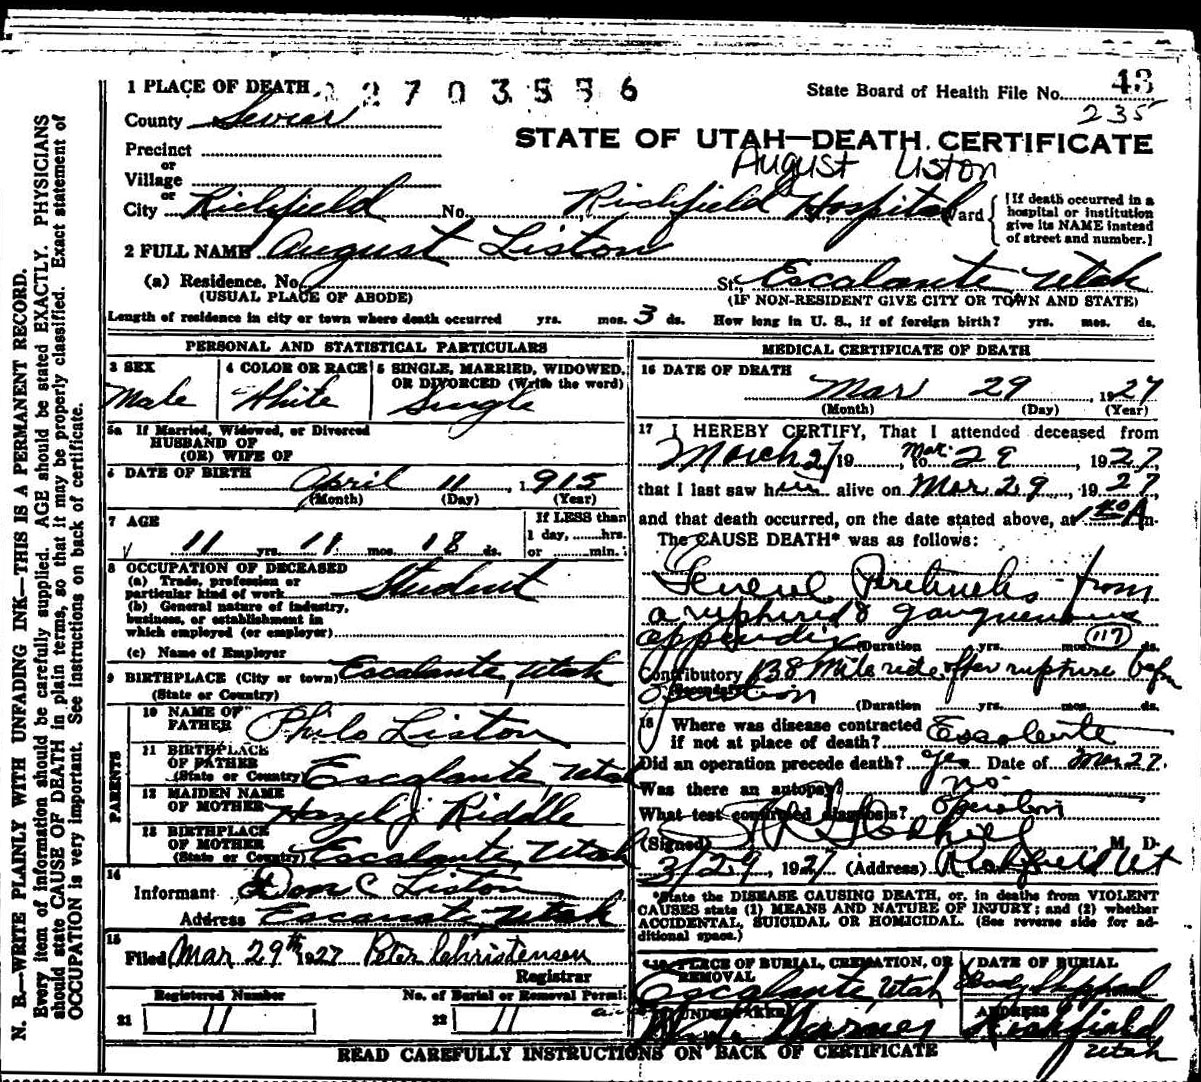 N. B.—WRITE PLAINLY WITH UNFADING INK—THIS IS A PERMANENT RECORD.
Every item of information should be carefully supplied. AGE should be stated EXACTLY. PHYSICIANS
should state CAUSE OF DEATH in plain terms, so that it may be properly classified. Exact statement of
OCCUPATION is very important. See instructions on back of certificate.
1 PLACE OF DEATH 2703556
State Board of Health File No. 43
235
County Sevier
STATE OF UTAH—DEATH CERTIFICATE
August Liston
Precinct
or
Village
or
City Richfield No. Richfield Hospital Ward
[If death occurred in a
hospital or institution
give its NAME instead
of street and number.]
2 FULL NAME August Liston
(a) Residence. No. St. Escalante Utah
(USUAL PLACE OF ABODE) (IF NON-RESIDENT GIVE CITY OR TOWN AND STATE)
Length of residence in city or town where death occurred yrs. mos. 3 ds. How long in U. S., if of foreign birth? yrs. mos. ds.
PERSONAL AND STATISTICAL PARTICULARS
3 SEX
Male
4 COLOR OR RACE
White
5 SINGLE, MARRIED, WIDOWED,
OR DIVORCED (Write the word)
Single
5a If Married, Widowed, or Divorced
HUSBAND OF
(OR) WIFE OF
6 DATE OF BIRTH April 11, 1915
(Month) (Day) (Year)
7 AGE
11 yrs. 11 mos. 18 ds.
If LESS than
1 day, hrs.
or min.
8 OCCUPATION OF DECEASED
(a) Trade, profession or
particular kind of work Student
(b) General nature of industry,
business, or establishment in
which employed (or employer)
(c) Name of Employer
9 BIRTHPLACE (City or town) Escalante, Utah
(State or Country)
PARENTS
10 NAME OF
FATHER Philo Liston
11 BIRTHPLACE
OF FATHER
(State or Country) Escalante, Utah
12 MAIDEN NAME
OF MOTHER Hazel J Riddle
13 BIRTHPLACE
OF MOTHER
(State or Country) Escalante, Utah
14
Informant Don C Liston
Address Escalante Utah
15
Filed Mar 29th 1927 Peter Christensen
Registrar
Registered Number No. of Burial or Removal Permit
21 11 22 11
MEDICAL CERTIFICATE OF DEATH
16 DATE OF DEATH
Mar 29, 1927
(Month) (Day) (Year)
17 I HEREBY CERTIFY, That I attended deceased from
March 27, 19, to Mar. 29, 1927,
that I last saw him alive on Mar 29, 1927
and that death occurred, on the date stated above, at A m.
The CAUSE DEATH* was as follows:
General Peritonitis from
a ruptured & gangrenous
appendix (Duration yrs. mos. ds.
117
Contributory 138 Mile ride after rupture before
operation
(Duration yrs. mos. ds.
18 Where was disease contracted
if not at place of death? Escalante
Did an operation precede death? Yes Date of Mar 27.
Was there an autopsy? no
What test confirmed diagnosis? operation
(Signed) M. D.
3/29, 1927 (Address) Richfield Ut
*State the DISEASE CAUSING DEATH, or, in deaths from VIOLENT
CAUSES state (1) MEANS AND NATURE OF INJURY; and (2) whether
ACCIDENTAL, SUICIDAL OR HOMICIDAL. (See reverse side for ad-
ditional space.)
19 PLACE OF BURIAL, CREMATION, OR
REMOVAL
Escalante, Utah
DATE OF BURIAL
Body Shipped
UNDERTAKER
ADDRESS
Richfield
Utah
READ CAREFULLY INSTRUCTIONS ON BACK OF CERTIFICATE